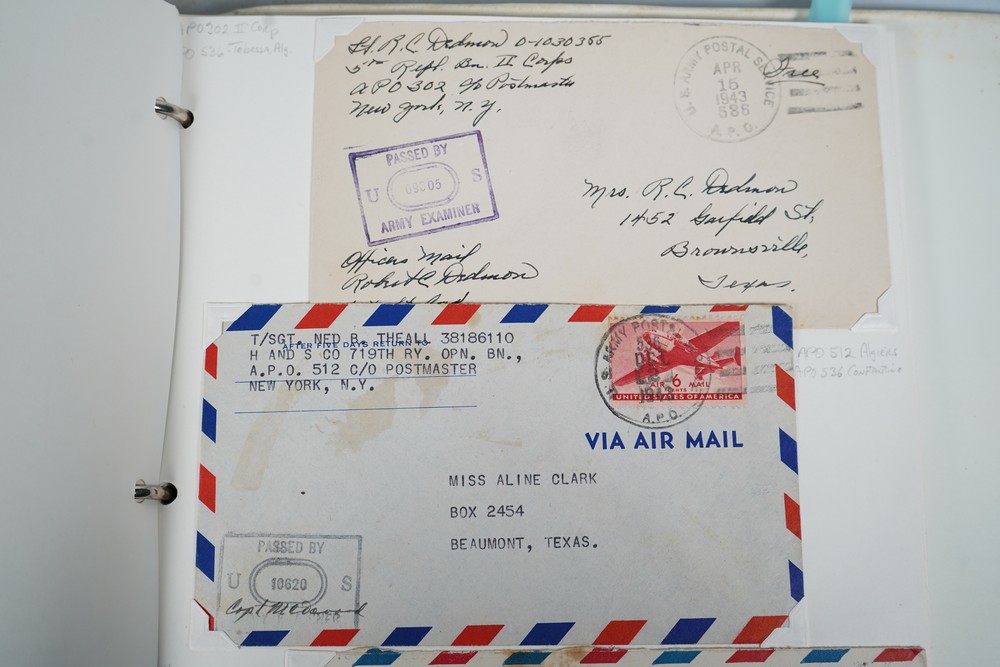 APO 302 II Corp
APO 536 Tebessa, Alg
Lt. R. C. Dedmon O-1030355
5th Repl. Bn. II Corps
APO 302 c/o Postmaster
New York, N.Y.
U.S. ARMY POSTAL SERVICE
APR
15
1943
A.P.O.
Free
PASSED BY
U S
ARMY EXAMINER
Mrs. R. C. Dedmon
1452 Garfield St,
Brownsville,
Texas.
Officers Mail
Robert C. Dedmon
T/SGT. NED B. THEALL 38186110
AFTER FIVE DAYS RETURN TO
H AND S CO 719TH RY. OPN. BN.,
A.P.O. 512 C/O POSTMASTER
NEW YORK, N.Y.
U.S. ARMY POSTAL
A.P.O.
AIR 6 MAIL
CENTS
UNITED STATES OF AMERICA
VIA AIR MAIL
APO 512 Algiers
APO 536 Constantine
MISS ALINE CLARK
BOX 2454
BEAUMONT, TEXAS.
PASSED BY
U 10620 S
Capt